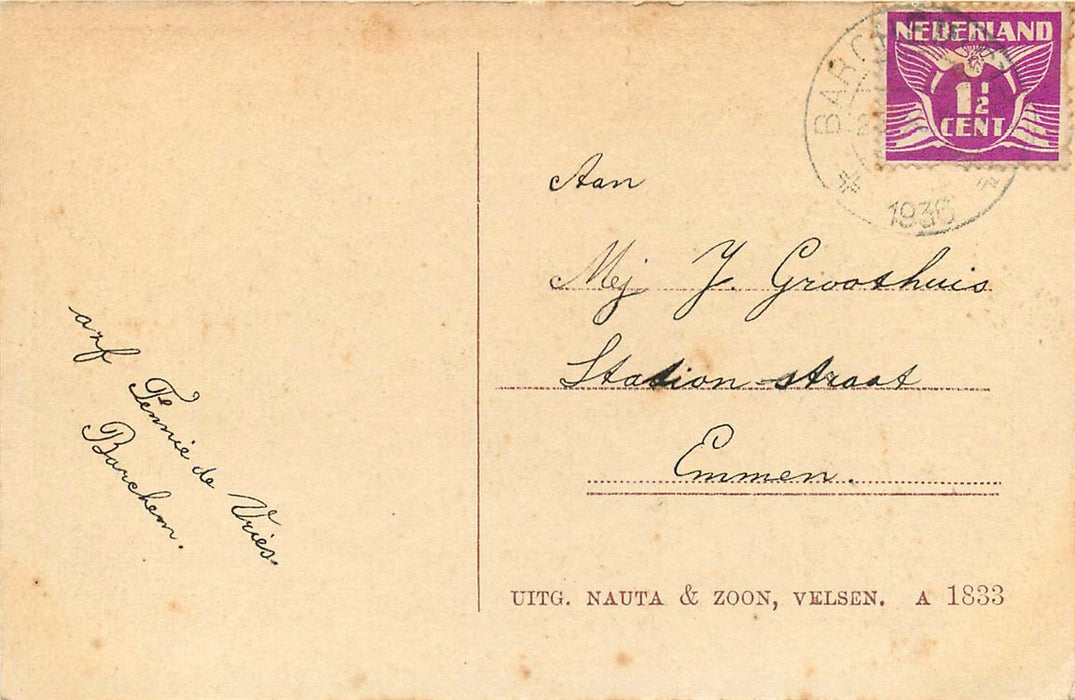 NEDERLAND
1½
CENT
BARCHEM
1936
Aan
Mej J. Groothuis
Station-straat
Emmen.
afz
Tennie de Vries.
Barchem.
UITG. NAUTA & ZOON, VELSEN. A 1833